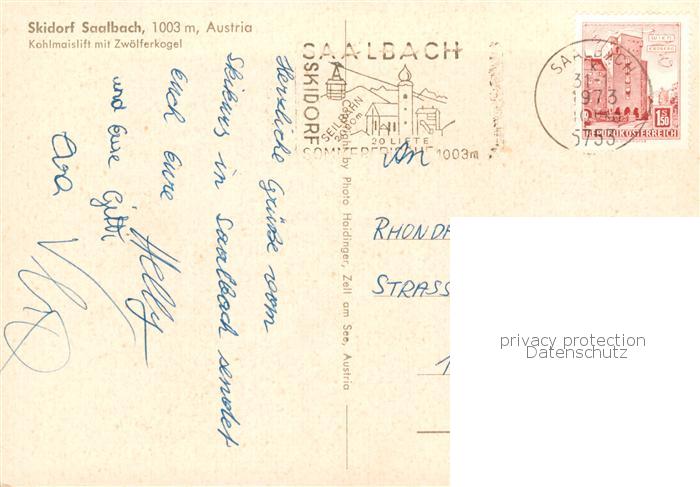 Skidorf Saalbach, 1003 m, Austria
Kohlmaislift mit Zwölferkogel
Herzliche Grüße vom
Skikurs in Saalbach sendet
Euch Eure
Helly
und Eure Gitti
SAALBACH
SKIDORF
SEILBAHN
20 LIFTE
1003m
Copyright by Photo Haidinger, Zell am See, Austria
SAALBACH
1973
5753
WIEN
1.50
REPUBLIK ÖSTERREICH
An
RHONDA
STRASS
privacy protection
Datenschutz